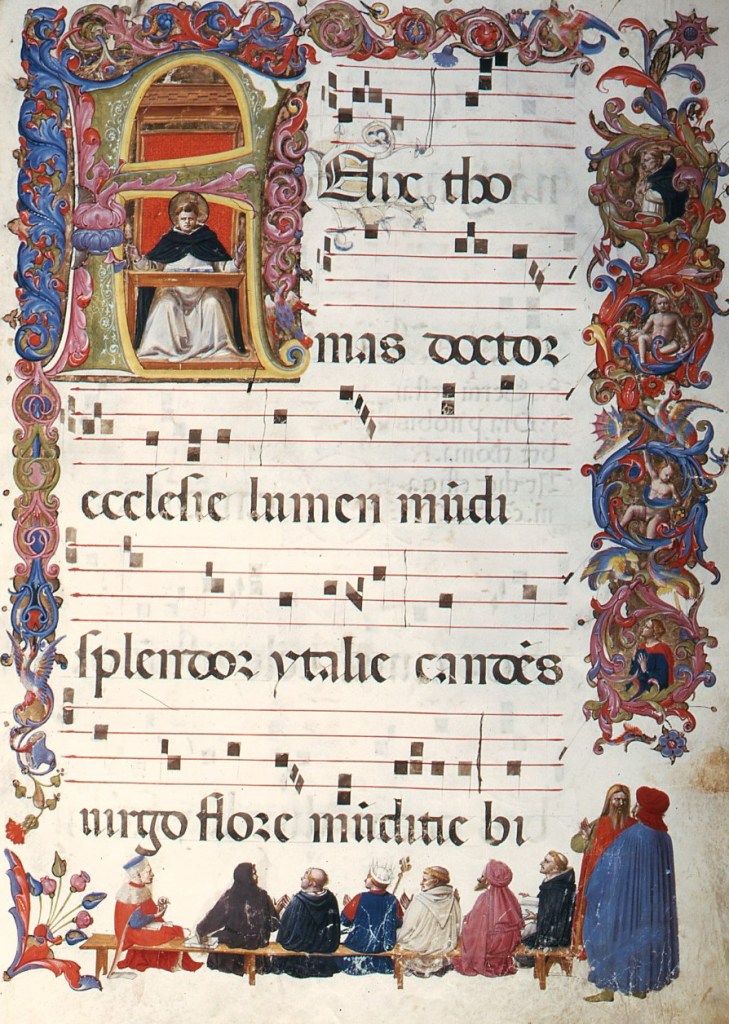 FElix tho
mas doctor
ecclesie lumen mũdi
splendor ytalie candẽs
uirgo flore mũditie bi